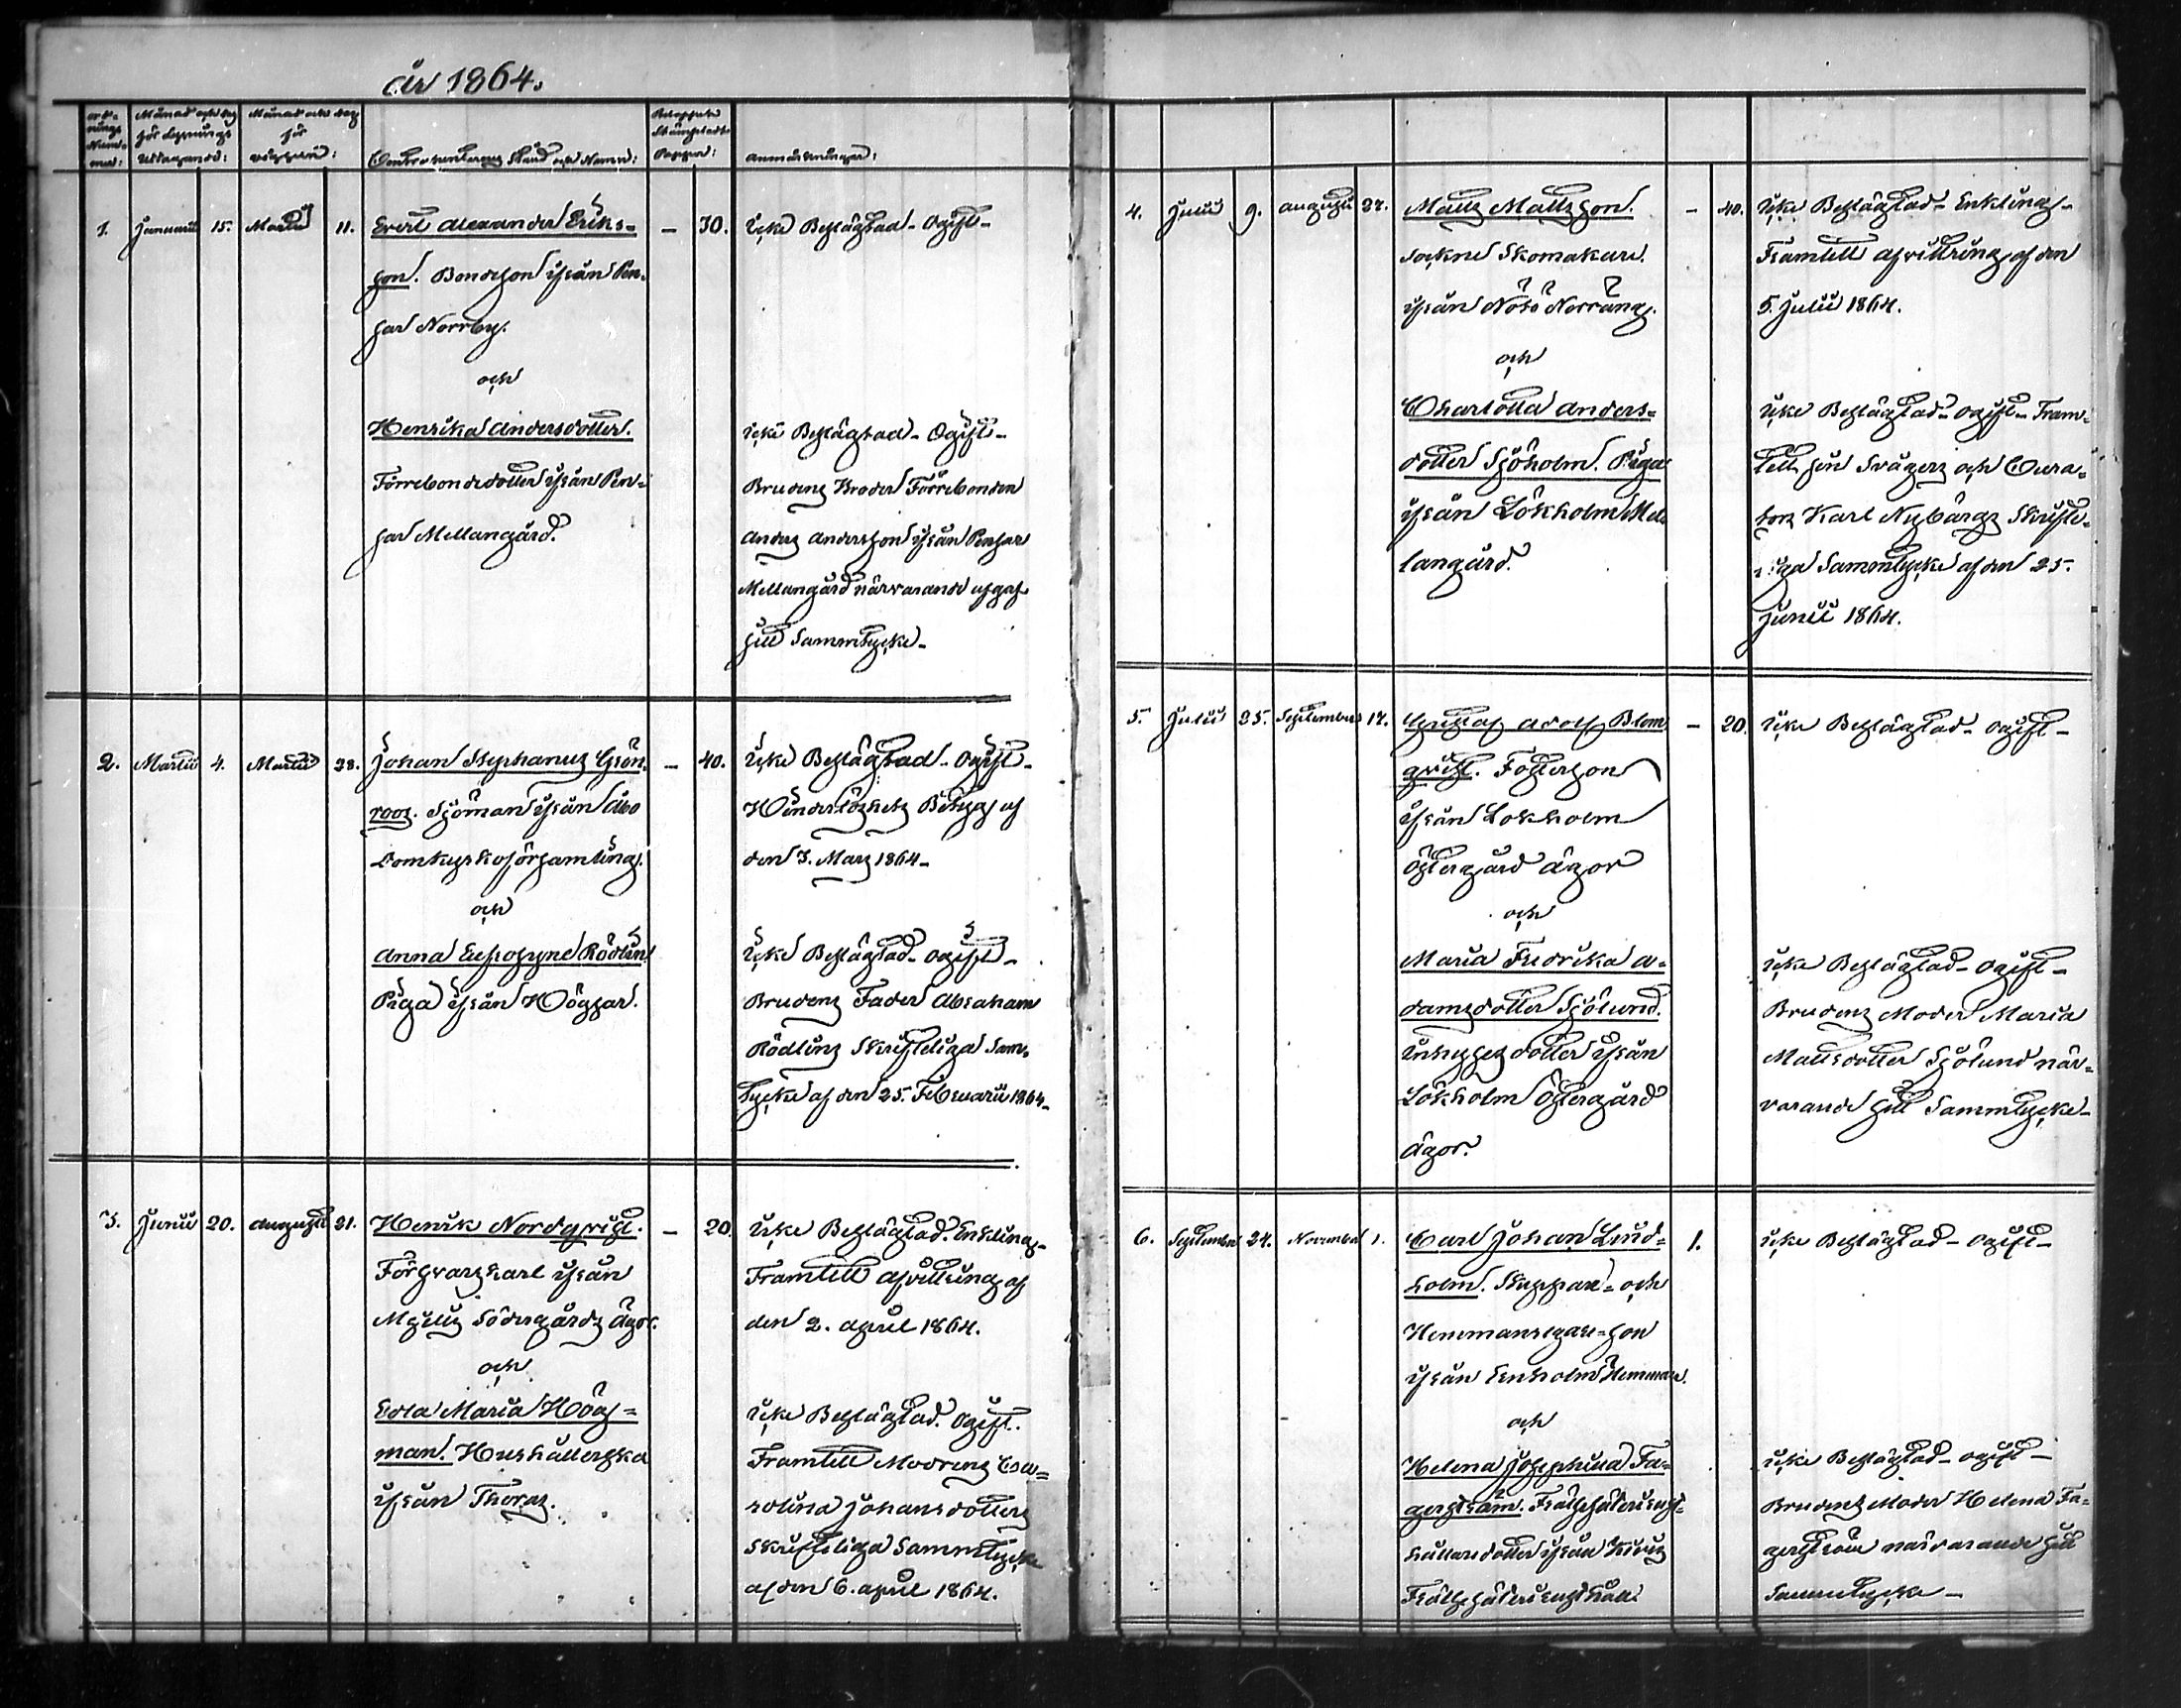 år 1864.
ord-
nings
Num-
mer:
Månad och dag
för Lysnings
Uttagande:
Månad och dag
för
vigseln:
Contrahenternes Stånd och Namn:
Beloppet
Stämpladt
Papper:
Anmärkningar:
1. Januarii 15. Martii 11. Evert Alexander Eriks-
son. Bondeson ifrån Pen-
sar Norrby.
och
Henrika Andersdotter.
Förrebondedotter ifrån Pen-
sar Mellangård.
— 30. icke Beslägtad - Ogift -
icke Beslägtad - Ogift -
Brudens Broder Förrebonden
Anders Andersson ifrån Pensar
Mellangård närvarande afgaf
sitt Sammtycke -
2. Martii 4. Martii 28. Johan Stephanus Grön-
roos. Sjöman ifrån Åbo
Domkyrkoförsamling.
och
Anna Eufrosyne Rödlin
Piga ifrån Högsar.
— 40. icke Beslägtad - Ogift -
Hinderlöshets Betyg af
den 3. Mars 1864 -
icke Beslägtad - ogift -
Brudens Fader Abraham
Rödlins Skriftliga Sam-
tycke af den 25. Februarii 1864 -
3. Junii 20. Augusti 21. Henrik Nordqvist.
Försvarskarl ifrån
Mjelis Södergårds Ägor.
och
Eva Maria Hög-
man. Hushållerska
ifrån Thoras.
— 20. icke Beslägtad. Enkling -
Framtett afvittring af
den 2. April 1864.
icke Beslägtad. Ogift.
Framtett Modrens Ca-
rolina Johansdotters
Skriftliga Sammtycke
af den 6. April 1864.
4. Julii 9. Augusti 27. Matts Mattsson.
Sockne Skomakare.
ifrån Nötö Norräng.
och
Charlotta Anders-
dotter Sjöholm. Piga
ifrån Lökholm Mel-
langård.
— 40. icke Beslägtad - Enkling -
Framtett afvittring af den
5. Julii 1864.
icke Beslägtad - ogift - Fram-
tett sin Svågers och Cura-
tors Karl Nybärgs Skrift-
liga Sammtycke af den 25.
Junii 1864.
5. Julii 25. September 17. Gustaf Adolf Blom-
qvist. Fosterson
ifrån Lökholm
Östergård ägor
och
Maria Fredrika A-
damsdotter Sjölund.
inhysesdotter ifrån
Lökholm Östergård
ägor.
— 20. icke Beslägtad - ogift -
icke Beslägtad - ogift -
Brudens Moder Maria
Mattsdotter Sjölund när-
varande sitt Sammtycke -
6. September 24. November 1. Carl Johan Lind-
holm. Skeppare- och
Hemmansegare-son
ifrån Enholm Hemman.
och
Helena Josephina Fa-
gerström. Frälse
ifrån
Frälse
1. icke Beslägtad - ogift -
icke Beslägtad - ogift -
Brudens Moder Helena Fa-
gerström närvarande sitt
Sammtycke -